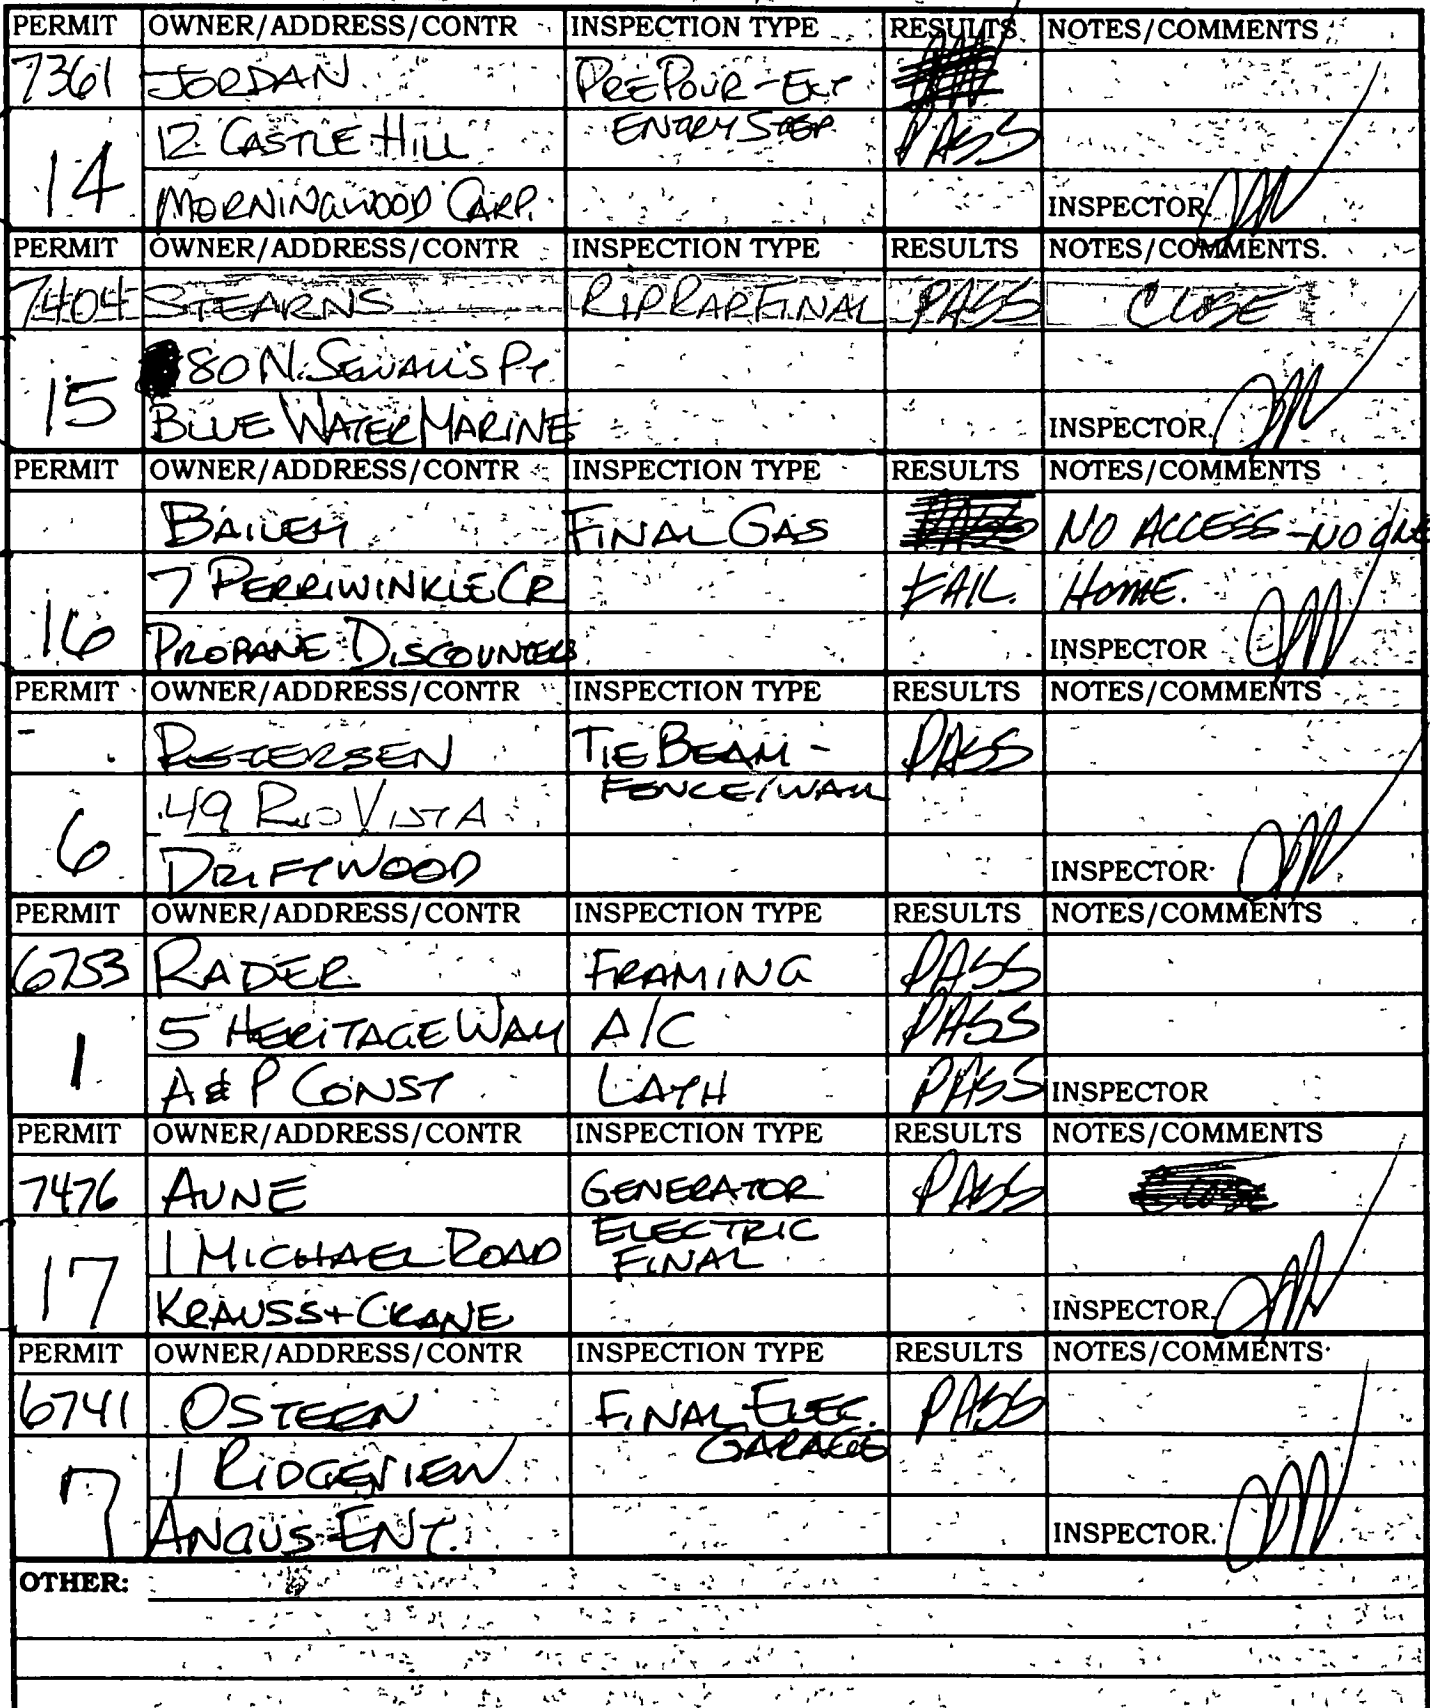 PERMIT OWNER/ADDRESS/CONTR INSPECTION TYPE RESULTS NOTES/COMMENTS
7361 JORDAN PREPOUR-EXT
12 CASTLE HILL ENTRY STEP PASS
14 MORNINGWOOD CARP. INSPECTOR
PERMIT OWNER/ADDRESS/CONTR INSPECTION TYPE RESULTS NOTES/COMMENTS.
7404 STEARNS RIPRAP FINAL PASS CLOSE
80 N. SEWALL'S PT.
15 BLUE WATER MARINE INSPECTOR.
PERMIT OWNER/ADDRESS/CONTR INSPECTION TYPE RESULTS NOTES/COMMENTS
BAILEY FINAL GAS NO ACCESS - NO ONE
7 PERRIWINKLE CR FAIL. HOME.
16 PROPANE DISCOUNTERS INSPECTOR
PERMIT OWNER/ADDRESS/CONTR INSPECTION TYPE RESULTS NOTES/COMMENTS
PETERSEN TIE BEAM - PASS
49 RIO VISTA FENCE/WALL
6 DRIFTWOOD INSPECTOR
PERMIT OWNER/ADDRESS/CONTR INSPECTION TYPE RESULTS NOTES/COMMENTS
6753 RADER FRAMING PASS
5 HERITAGE WAY A/C PASS
1 A&P CONST LATH PASS INSPECTOR
PERMIT OWNER/ADDRESS/CONTR INSPECTION TYPE RESULTS NOTES/COMMENTS
7476 AUNE GENERATOR PASS
1 MICHAEL ROAD ELECTRIC
FINAL
17 KRAUSS+CRANE INSPECTOR.
PERMIT OWNER/ADDRESS/CONTR INSPECTION TYPE RESULTS NOTES/COMMENTS
6741 OSTEEN FINAL ELEC. PASS
GARAGE
1 RIDGEVIEW
7 ANGUS ENT. INSPECTOR.
OTHER: